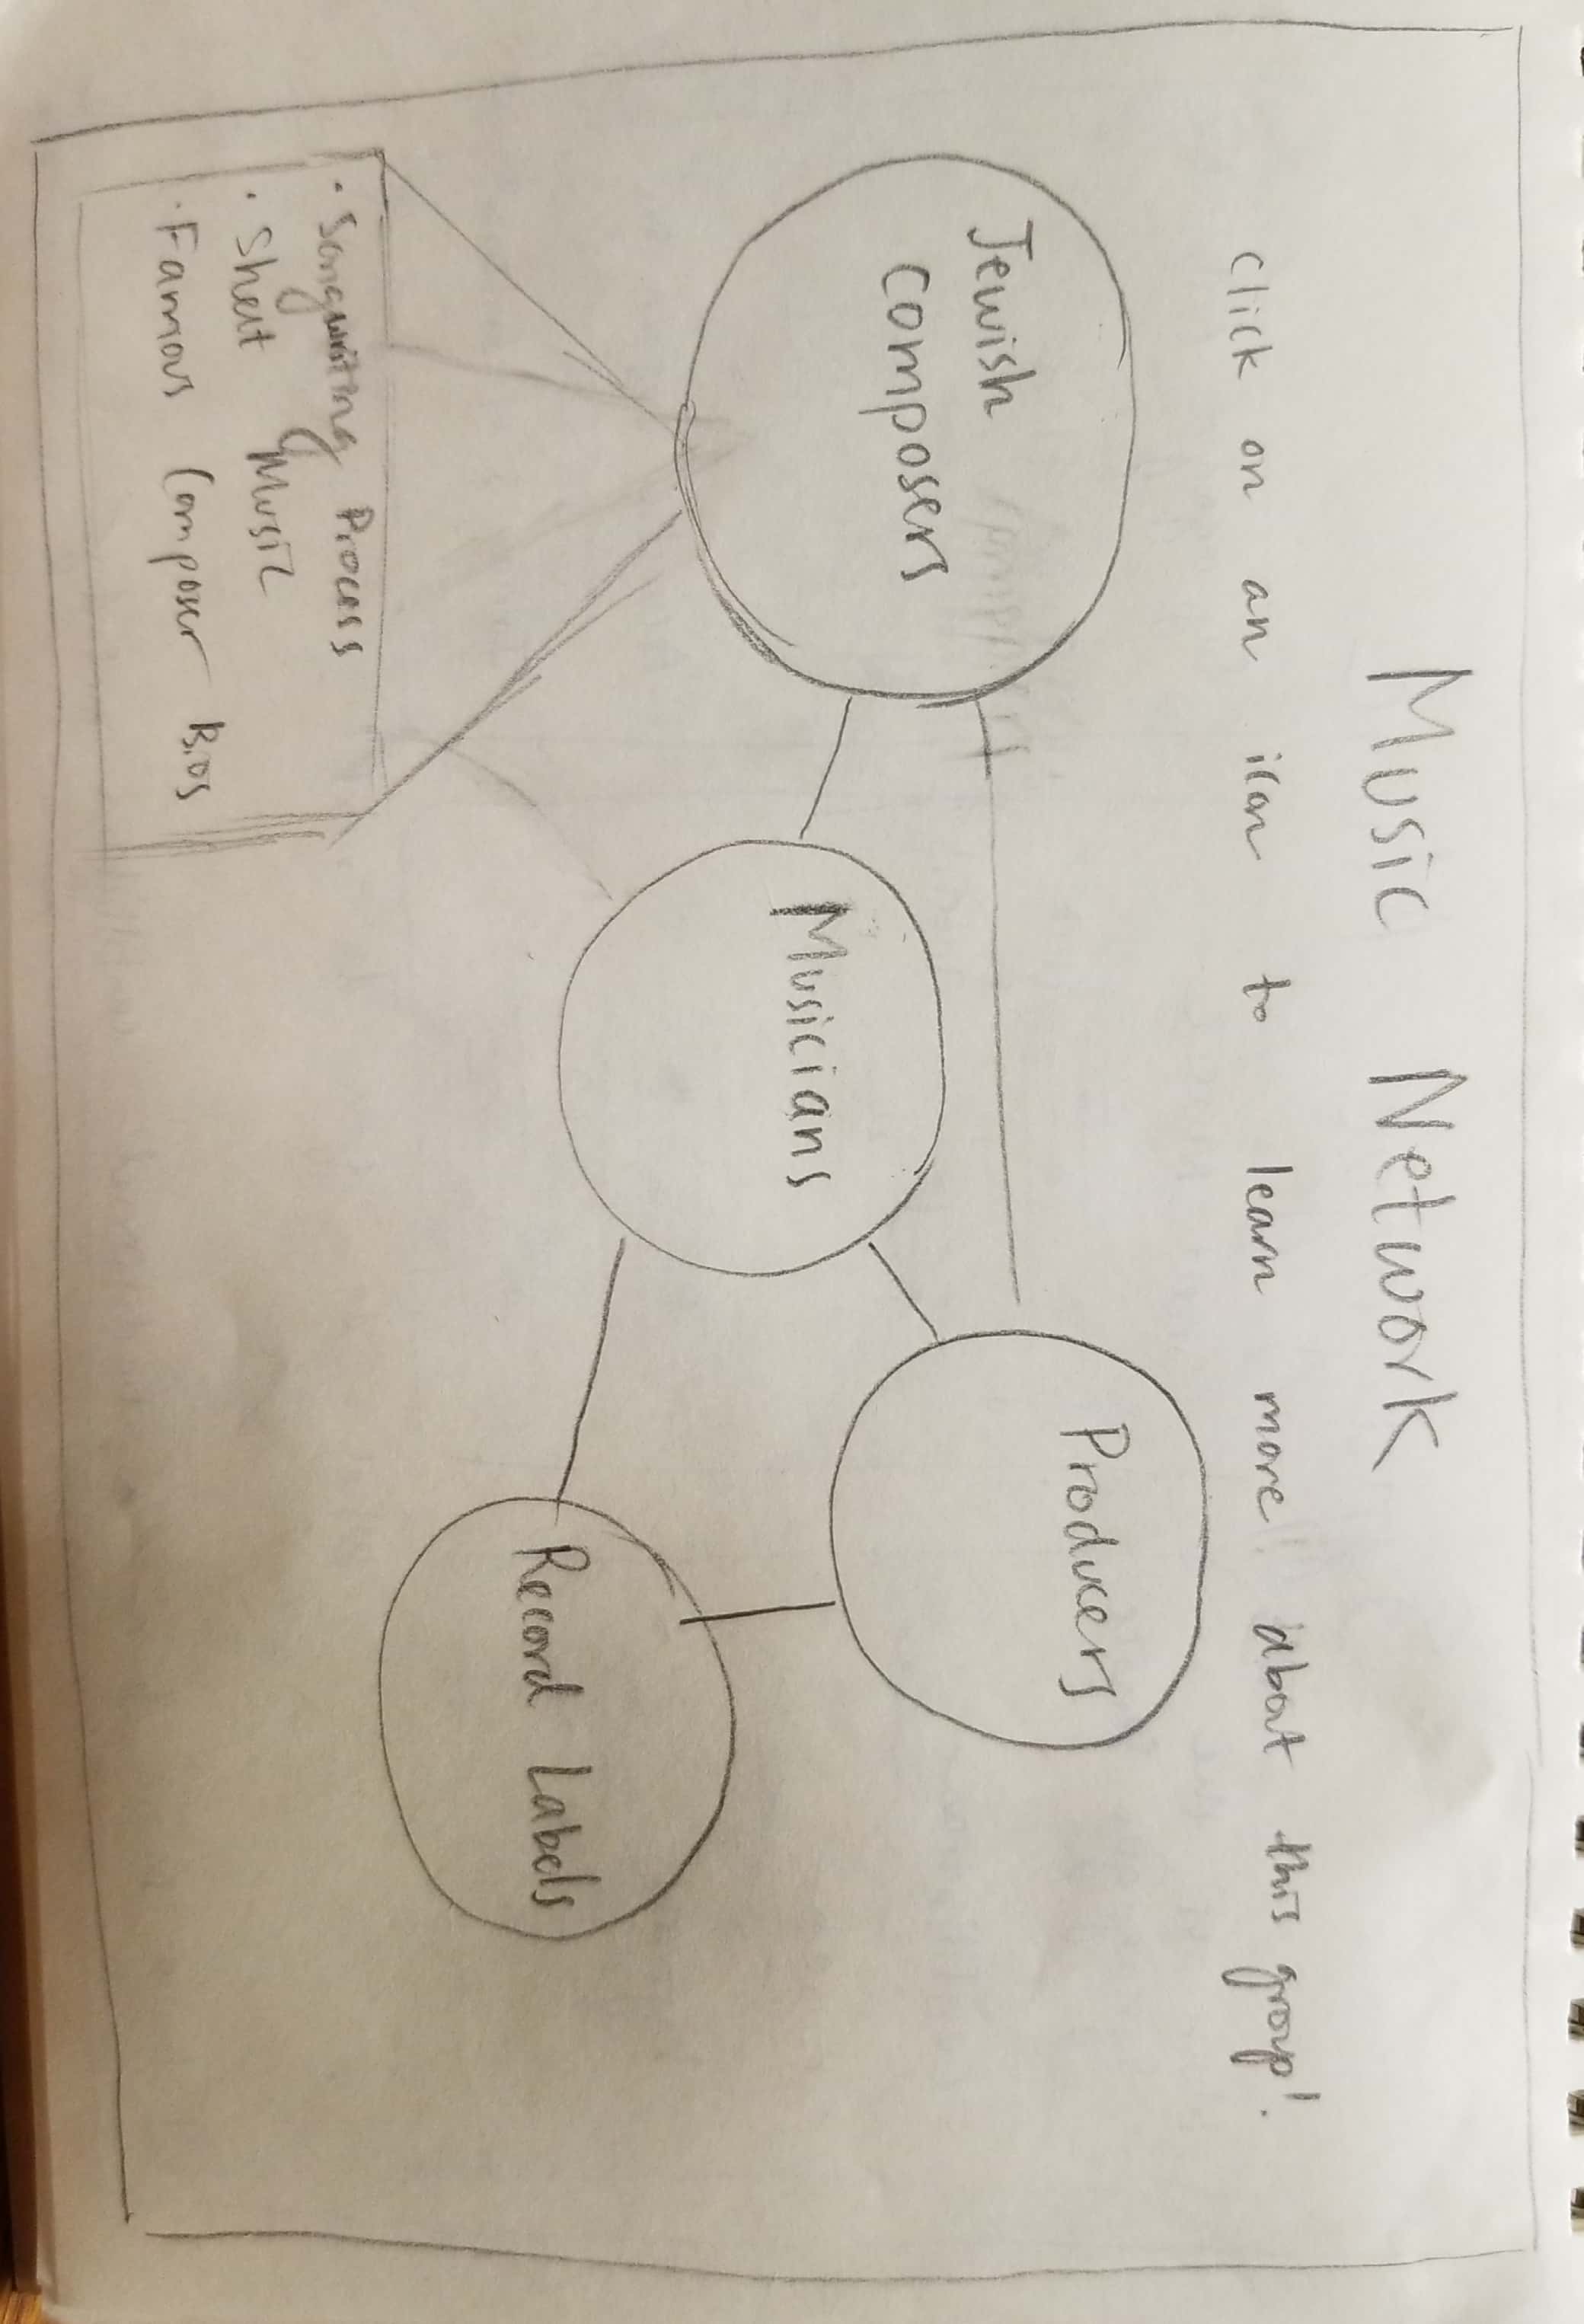 Music Network
click on an icon to learn more about this group!
Jewish
composers
Musicians
Producers
Record Labels
· Songwriting Process
· Sheet Music
· Famous Composer Bios